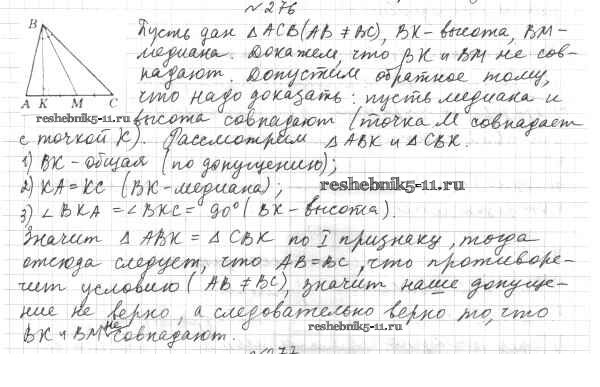 №276
B
A K M C
Пусть дан △ ACB (AB ≠ BC), BK - высота, BM -
медиана. Докажем, что BK и BM не сов-
падают. Допустим обратное тому,
что надо доказать: пусть медиана и
reshebnik5-11.ru
высота совпадают (точка M совпадает
с точкой K). Рассмотрем △ ABK и △ CBK.
1) BK - общая (по допущению);
2) KA = KC (BK - медиана);
reshebnik5-11.ru
3) ∠BKA = ∠BKC = 90° (BK - высота).
Значит △ ABK = △ CBK по I признаку, тогда
отсюда следует, что AB = BC, что противоре-
чит условию (AB ≠ BC), значит наше допуще-
ние не верно, а следовательно верно то, что
BK и BM не совпадают.
reshebnik5-11.ru
№277